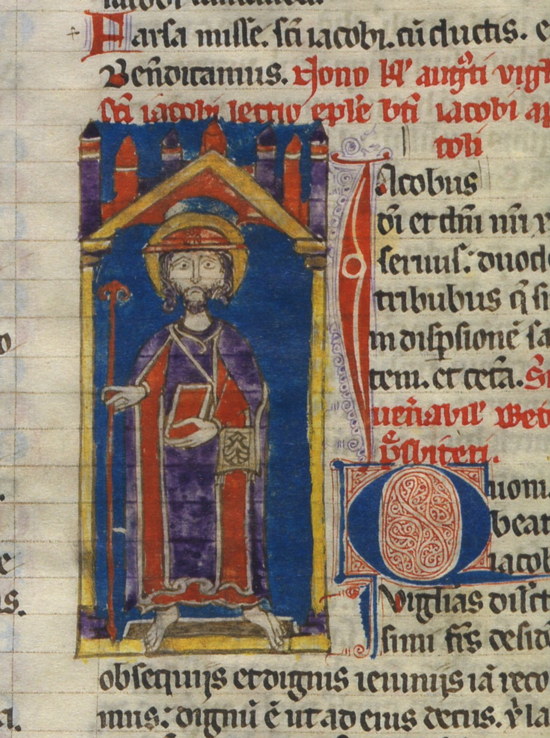 Farsa misse. sc̃i iacobi. cũ ductis.
Benedicamus. Nono kl̃ augti vigl
sc̃i iacobi lectio ep̃le bt̃i iacobi ap
toli
Iacobus
dĩ et dñi nr̃i
seruus: duode
tribubus q̃ sĩ
in disp̃sionẽ sa
tem. et cetã.
uen̾abil̾
p̃sbiteri.
Quoni
beat
iacob
vigilias dil̾ct
simi fr̃s desid
obsequijs et dignis ieiunijs iã reco
mus: dignũ ẽ ut ad eius decus.